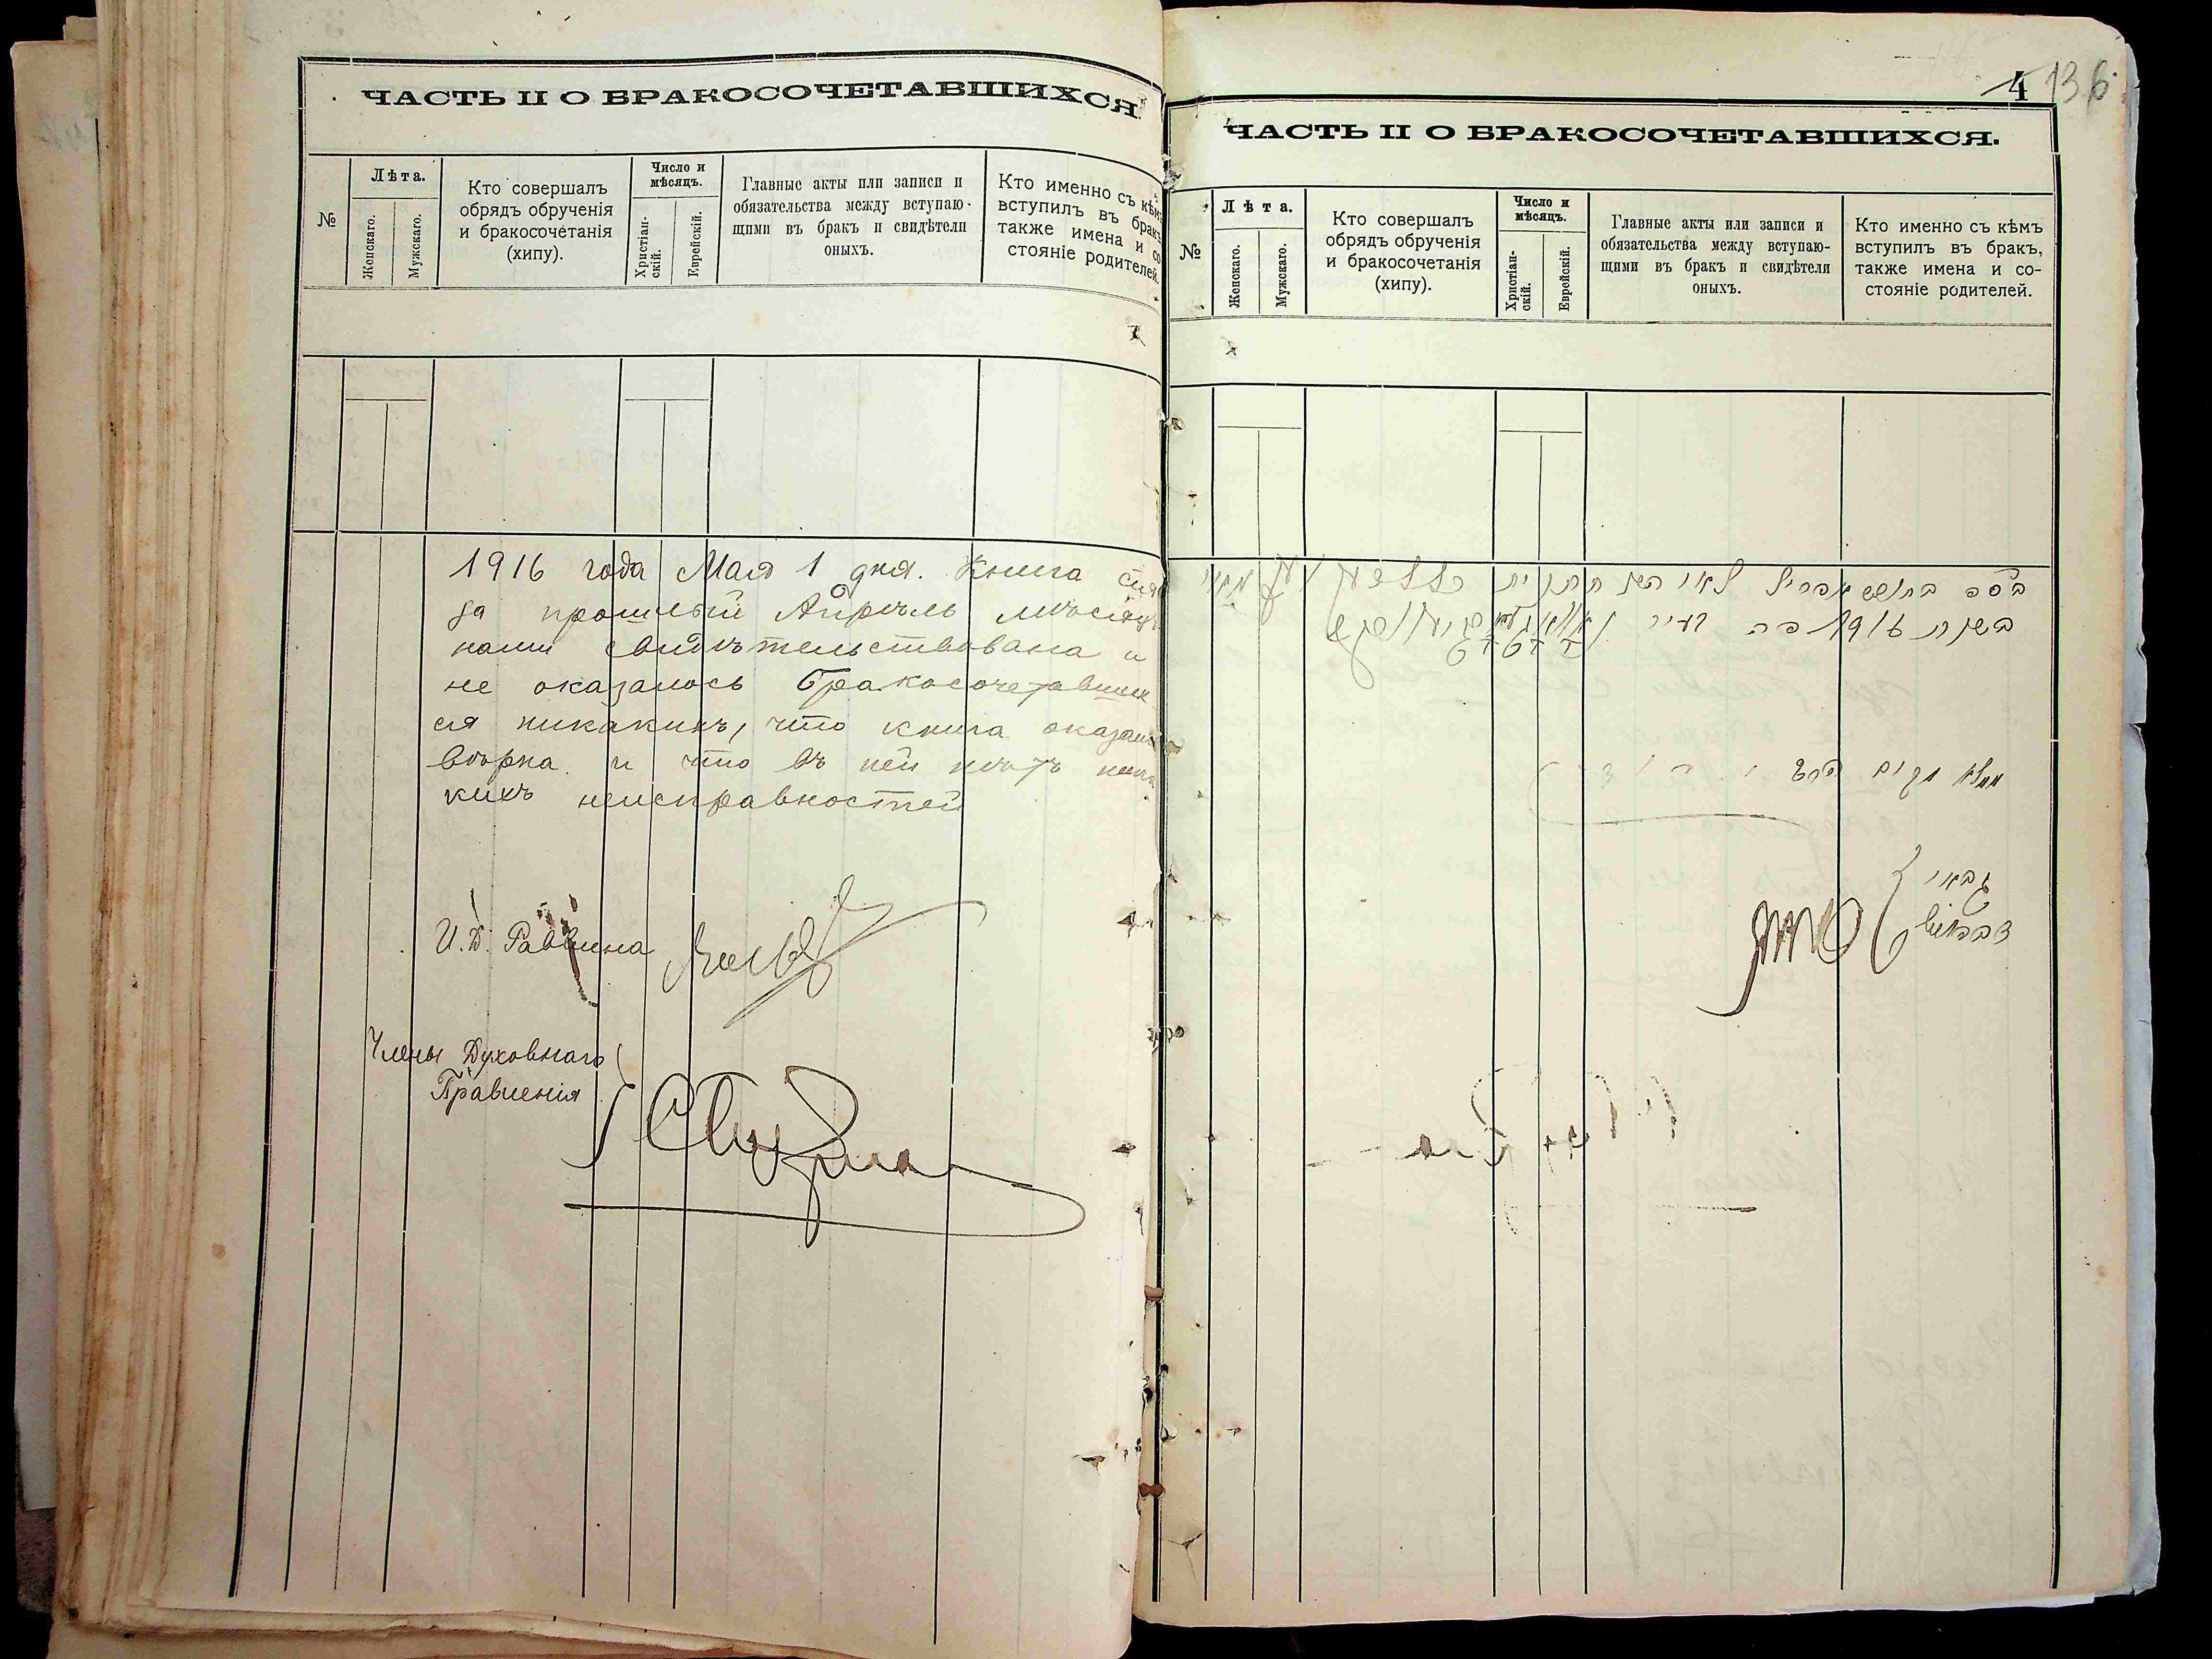 ЧАСТЬ II О БРАКОСОЧЕТАВШИХСЯ
№
Лѣта.
Женскаго.
Мужскаго.
Кто совершалъ
обрядъ обрученія
и бракосочетанія
(хипу).
Число и
мѣсяцъ.
Христіан-
скій.
Еврейскій.
Главные акты или записи и
обязательства между вступаю-
щими въ бракъ и свидѣтели
оныхъ.
Кто именно съ кѣмъ
вступилъ въ бракъ
также имена и со
стояніе родителей.
1916 года Мая 1 дня. Книга сія
за прошлый Апрѣль мѣсяцъ
нами свидѣтельствована и
не оказалось бракосочетавших
ся никакихъ, что книга оказал
вѣрна и что въ ней нѣтъ ника
кихъ неисправностей
И.Д. Раввина
Члены Духовнаго
Правленія
4 136
ЧАСТЬ II О БРАКОСОЧЕТАВШИХСЯ.
№
Лѣта.
Женскаго.
Мужскаго.
Кто совершалъ
обрядъ обрученія
и бракосочетанія
(хипу).
Число и
мѣсяцъ.
Христіан-
скій.
Еврейскій.
Главные акты или записи и
обязательства между вступаю-
щими въ бракъ и свидѣтели
оныхъ.
Кто именно съ кѣмъ
вступилъ въ бракъ,
также имена и со-
стояніе родителей.
בשנת 1916 פה העיר
גבאי